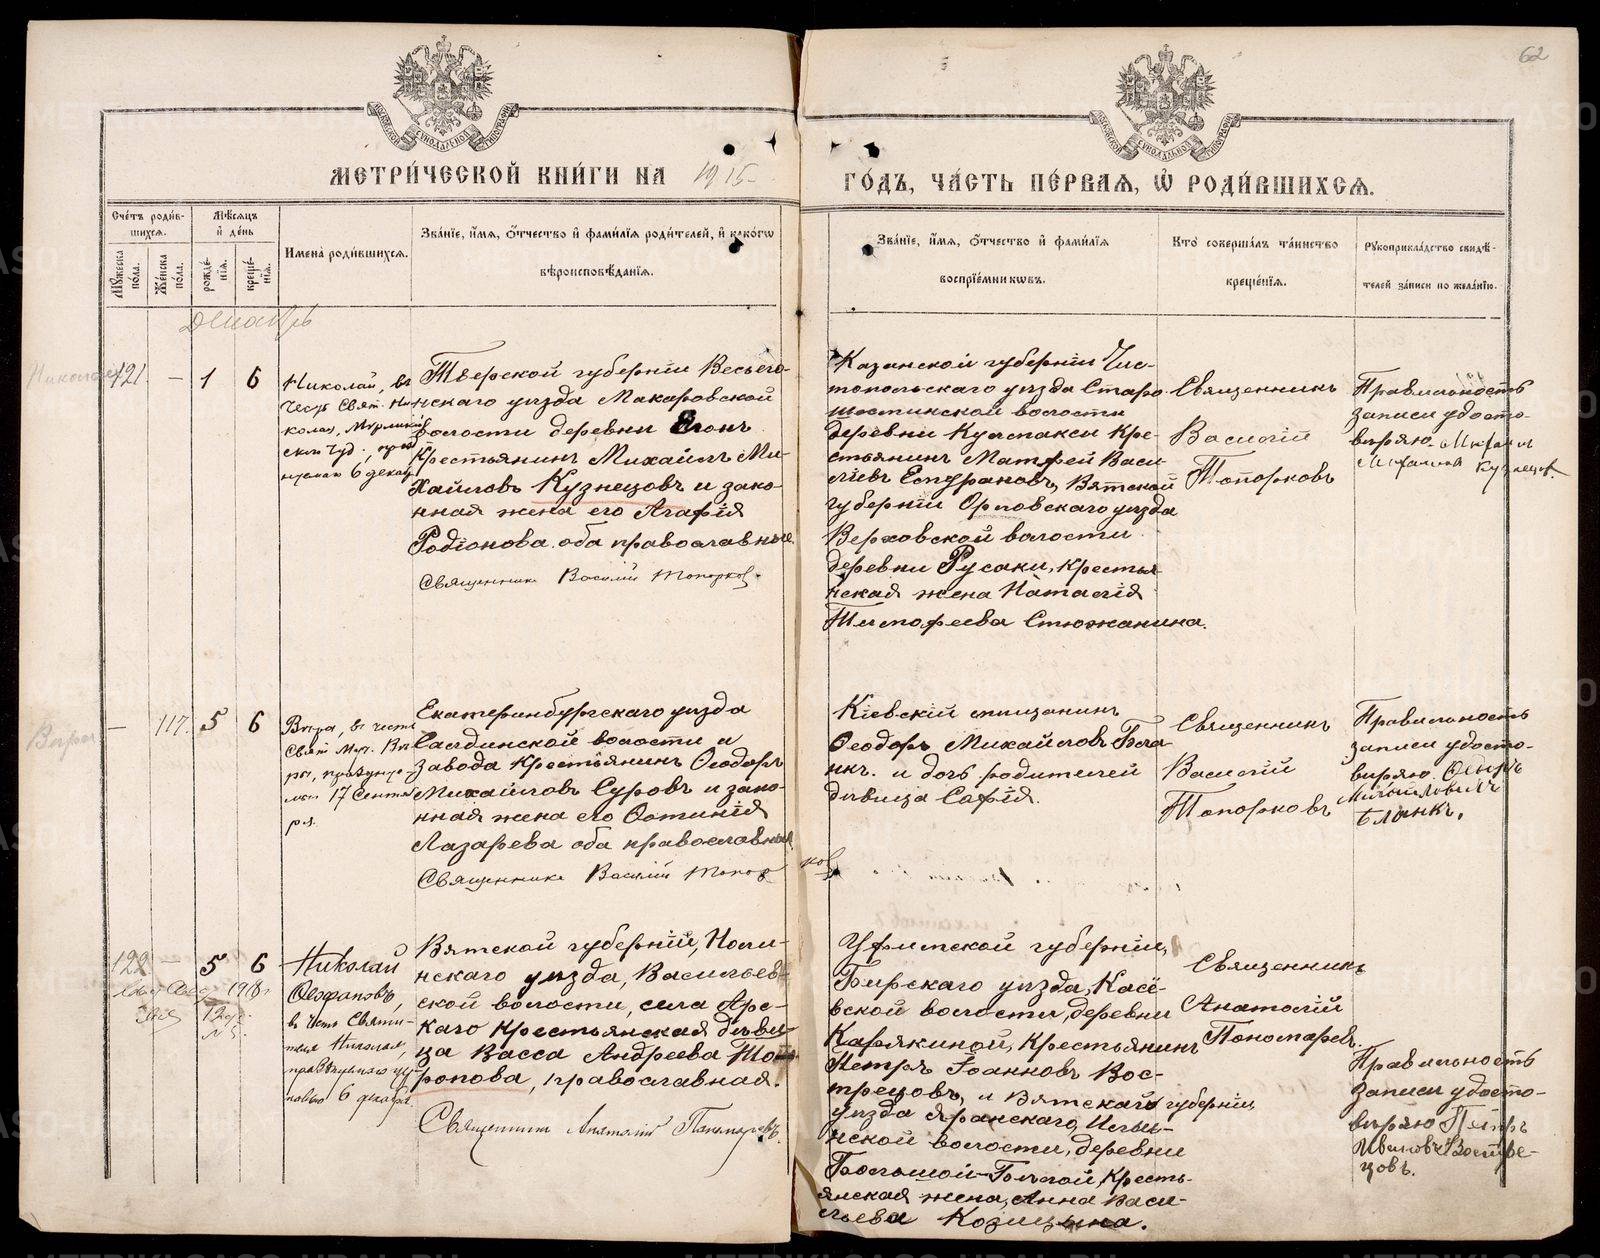 62
МЕТРИ́ЧЕСКОЙ КНИ́ГИ НА 1915
ГО́ДЪ, ЧА́СТЬ ПЕ́РВАЯ, Ѽ РОДИ́ВШИХСЯ.
Сче́тъ роди́в-
шихся.
Му́жеска по́ла.
Же́нска по́ла.
Мѣ́сяцъ
и҆ де́нь
рожде́-
нїя.
креще́-
нїя.
И҆мена̀ роди́вшихся.
Зва́нїе, и҆́мя, ѻ҆́тчество и҆ фами́лїя роди́телей, и҆ како́гѡ
вѣроисповѣ́данїя.
Зва́нїе, и҆́мя, ѻ҆́тчество и҆ фами́лїя
воспрїе́мникѡвъ.
Кто̀ соверша́лъ та́инство
креще́нїя.
Рꙋкоприкла́дство свидѣ́-
телей за́писи по жела́нїю.
Декабрь
Николай
121.
—
1
6
Николай, въ
честь Свят. Ни-
колая, Мурликій
скаго Чуд.
6 декаб.
Тверской губерніи Весьего-
нскаго уѣзда Макаровской
волости деревни
Крестьянинъ Михаилъ Ми-
хайловъ Кузнецовъ и зако-
нная жена его Агафія
Родіонова оба православные
Священникъ Василій Топорков.
Казанской губерніи Чис-
топольскаго уѣзда Старо
волости
деревни Кулмакси Кре-
стьянинъ Матфей Васи-
ліевъ Вятской
губерніи Орловскаго уѣзда
Верховской волости
деревни Русаки, крестья
нская жена Наталія
Тимофеева Стюжанина.
Священникъ
Василій
Топорковъ
Правильность
записи удосто-
вѣряю. Михаил
Михаиловъ Кузнецов.
Вѣра
—
117.
5
6
Вѣра, въ честь
Свят. Муч. Вѣ-
ры, празднуе-
мой 17 Сентяб
ря.
Екатеринбургскаго уѣзда
Салдинской волости и
завода Крестьянинъ Ѳеодоръ
Михаиловъ Суровъ и зако-
нная жена его Фотинія
Лазарева оба православные
Священникъ Василій Топор
ков
Кіевскій мѣщанинъ
Ѳеодоръ Михайловъ Бла
нкъ. и дочь родителей
дѣвица Софія.
Священникъ
Василій
Топорковъ
Правильность
записи удосто-
вѣряю. Ѳеодоръ
Михайловичъ
Бланкъ.
122
—
5
6
1918г.
Николай
Ѳеофановъ,
въ честь Святи-
теля Николая,
празднуемаго цер-
ковью 6 декабря.
Вятской губерніи, Ноли-
нскаго уѣзда, Васильев-
ской волости, села Арс-
каго крестьянская дѣви
ца Васса Андреева
православная.
Священникъ Анатолій Пономаревъ.
Уфимской губерніи,
Бирскаго уѣзда, Касё-
вской волости, деревни
Карякиной, Крестьянинъ
Петръ Іоанновъ Вос-
трецовъ, и Вятскаго губерніи,
уѣзда Яранскаго,
нской волости, деревни
Большой-Гольгой, Кресть-
янская жена, Анна Васи-
льева Козицына.
Священникъ
Анатолій
Пономаревъ.
Правильность
записи удосто-
вѣряю Петръ
Ивановъ Востре-
цовъ.